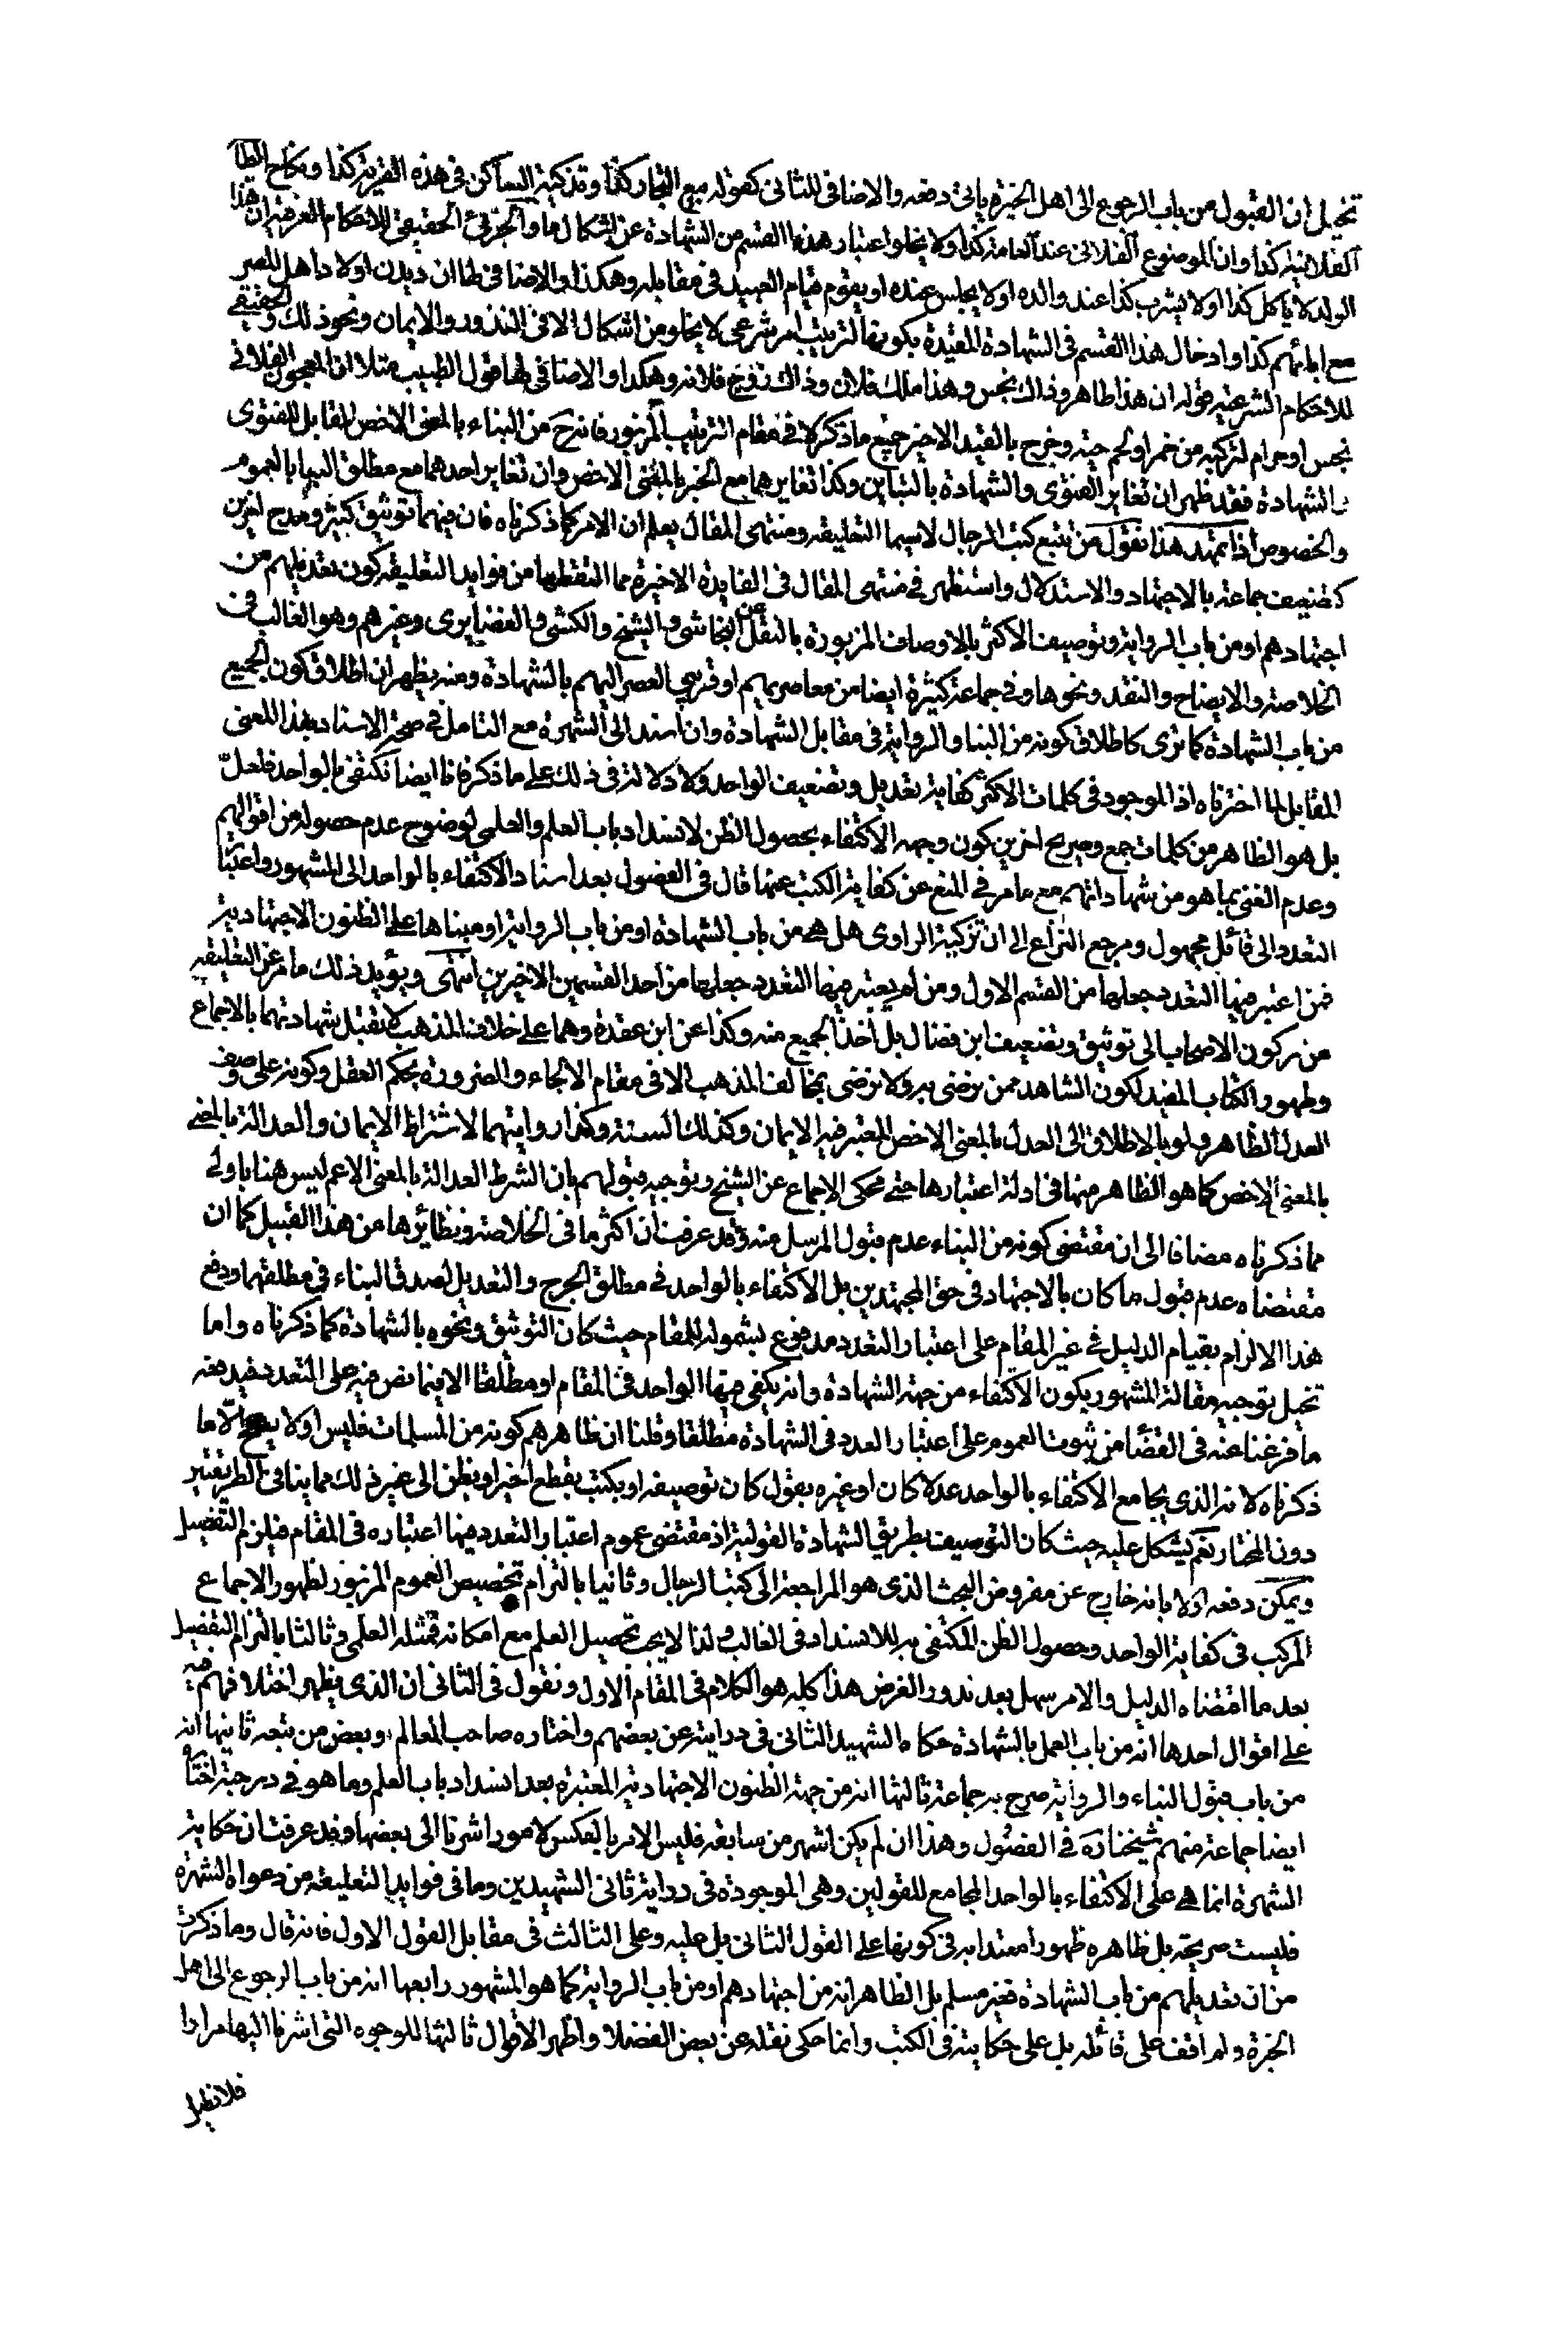 تخيل ان القبول من باب الرجوع الى اهل الخبرة ياتى دفعه والاضافى للثانى كقوله مبيع التجار كذا وتذكية السماكن فى هذه القرية كذا ونكاح
الفلانية كذا وان الموضوع الفلانى عند العامة كذا ولا يخلوا عتبار هذا القسم من الشهادة عن اشكال ما والجزئى الحقيقى للاحكام العرفية ان هذا
الولد لا ياكل كذا او لا يشرب كذا عند والده او لا يجلس عنده او يقوم قيام العبيد فى مقابله وهكذا والاضافى لها ان ديدن اولاد اهل المصر
مع ابائهم كذا وادخال هذا القسم فى الشهادة المقيدة بكونها لترتيب امر شرعى لا يخلو من اشكال الا فى النذور والايمان ونحو ذلك والحقيقى
للاحكام الشرعية قوله ان هذا طاهر وذاك نجس وهذا ملك فلان وذاك زوج فلانه وهكذا والاضافى لها قول الطبيب مثلا ان المعجون الفلانى
نجس او حرام لتركبه من خمر او لحم حية وخرج بالقيد الاخير جميع ما ذكر لا فى مقام الترتيب المزبور فاندرج من النباء بالمعنى الاخص المقابل للفتوى
والشهادة فقد ظهر ان تغاير الفتوى والشهادة بالتباين وكذا تغايرهما مع الخبر بالمعنى الاخص وان تغاير احدهما مع مطلق النبا بالعموم
والخصوص اذا تمهد هذا نقول من تتبع كتب الرجال لا سيما التعليقه ومنتهى المقال يعلم ان الامر كما ذكرناه فان فيهما توثيق كثير ومدح اخرين
كتضعيف جماعة بالاجتهاد والاستدلال واستظهر فى منتهى المقال فى الفايدة الاخيرة مما التقطها من فوايد التعليقه كون تعديلهم من
اجتهادهم او من باب الرواية وتوصيف الاكثر بالاوصاف المزبورة بالنقل عن النجاشى والشيخ والكشى والغضايرى وغيرهم وهو الغالب فى
الخلاصة والايضاح والنقد ونحوها وفى جماعة كثيرة ايضا من معاصريهم او قريبى العصر اليهم بالشهادة ومنه يظهر ان اطلاق كون الجميع
من باب الشهادة كما ترى كاطلاق كونه من النبا والرواية فى مقابل الشهادة وان اسند الى الشهرة مع التامل فى صحة الاسناد بهذا المعنى
المقابل لما اخترناه اذ الموجود فى كلمات الاكثر كفاية تعديل وتضعيف الواحد ولا دلالة فى ذلك على ما ذكر فانا ايضا نكتفى بالواحد فلعل
بل هو الظاهر من كلمات جمع وصريح اخرين كون وجهه الاكتفاء بحصول الظن لانسداد باب العلم والعلمى لوضوح عدم حصوله من اقوالهم
وعدم الغنى بما هو من شهاداتهم مع ما مر فى المنع عن كفاية الكتب عنها قال فى الفصول بعد اسناد الاكتفاء بالواحد الى المشهور واعتبار
التعدد الى قائل مجهول ومرجع النزاع الى ان تزكية الراوى هل هى من باب الشهادة او من باب الرواية او مبناها على الظنون الاجتهادية
فمن اعتبر فيها التعدد جعلها من القسم الاول ومن لم يعتبر فيها التعدد جعلها من احد القسمين الاخيرين انتهى ويؤيد ذلك ما مر عن التعليقه
من ركون الاصحاب الى توثيق وتضعيف ابن فضال بل اخذ الجميع منه وكذا عن ابن عقدة وهما على خلاف المذهب لا تقبل شهادتهما بالاجماع
وظهور الكتاب المفيد لكون الشاهد ممن نرضى به ولا نرضى بمخالف المذهب الا فى مقام الالجاء والضرورة بحكم العقل وكونه على وصف
العدل الظاهر ولو بالاطلاق الى العدل بالمعنى الاخص المعتبر فيه الايمان وكذلك السنة وكذا روايتهما لاشتراط الايمان والعدالة بالمعنى
بالمعنى الاخص كما هو الظاهر منها فى ادلة اعتبارها حتى محكى الاجماع عن الشيخ وتوجيه قبولهم بان الشرط العدالة بالمعنى الاعم ليس هنا باولى
مما ذكرناه مضافا الى ان مقتضى كونه من النباء عدم قبول المرسل منه وقد عرفت ان اكثر ما فى الخلاصة ونظائرها من هذا القبيل كما ان
مقتضاه عدم قبول ما كان بالاجتهاد فى حق المجتهدين بل الاكتفاء بالواحد فى مطلق الجرح والتعديل لصدق النباء فى مطلقهما ودفع
هذا الالزام بقيام الدليل فى غير المقام على اعتبار التعدد مدفوع بشموله للمقام حيث كان التوثيق ونحوه بالشهادة كما ذكرناه واما
تخيل توجيه مقالة المشهور بكون الاكتفاء من جهة الشهادة وانه يكفى فيها الواحد فى المقام او مطلقا الا فيما نص فيه على التعدد فيدفعه
ما فرغنا عنه فى القضا من ثبوت العموم على اعتبار العدد فى الشهادة مطلقا وقلنا ان ظاهرهم كونه من المسلمات فليس اولا يصح الا ما
ذكرناه لانه الذى يجامع الاكتفاء بالواحد عدلا كان او غيره بقول كان توصيفه او بكتب بقطع اخبر او بظن الى غير ذلك مما ينافى الطريقتين
دون المختار نعم يشكل عليه حيث كان التوصيف بطريق الشهادة القولية اذ مقتضى عموم اعتبار التعدد فيها اعتباره فى المقام فيلزم التفصيل
ويمكن دفعه اولا بانه خارج عن مفروض البحث الذى هو المراجعة الى كتب الرجال وثانيا بالتزام تخصيص العموم المزبور لظهور الاجماع
المركب فى كفاية الواحد وحصول الظن المكتفى به للانسداد فى الغالب ولذا لا يجب تحصيل العلم مع امكانه فمثله العلمى وثالثا بالتزام التفصيل
بعد ما اقتضاه الدليل والامر سهل بعد ندور الفرض هذا كله هو الكلام فى المقام الاول ونقول فى الثانى ان الذى يظهر اختلافهم فيه
على اقوال احدها انه من باب العمل بالشهادة حكاه الشهيد الثانى فى دراية عن بعضهم واختاره صاحب المعالم وبعض من تبعه ثانيها انه
من باب قبول النباء والرواية صرح به جماعة ثالثها انه من جهة الظنون الاجتهادية المعتبرة بعد انسداد باب العلم وما هو فى درجته اختاره
ايضا جماعة منهم شيخنا ره فى الفصول وهذا ان لم يكن اشهر من سابقه فليس الامر بالعكس لامور اشرنا الى بعضها وقد عرفت ان حكاية
الشهرة انما هى على الاكتفاء بالواحد المجامع للقولين وهى الموجودة فى دراية ثانى الشهيدين وما فى فوايد التعليقه من دعواه الشهرة
فليست صريحة بل ظاهره ظهورا معتدا به فى كونها على القول الثانى بل عليه وعلى الثالث فى مقابل القول الاول فانه قال وما ذكرت
من ان تعديلهم من باب الشهادة فغير مسلم بل الظاهر انه من اجتهادهم او من باب الرواية كما هو المشهور رابعها انه من باب الرجوع الى اهل
الخبرة ولم اقف على قائله بل على حكايته فى الكتب وانما حكى نقله عن بعض الفضلا واظهر الاقوال ثالثها للوجوه التى اشرنا اليها مرارا
فلا نطيل